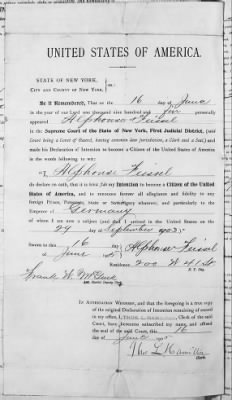 UNITED STATES OF AMERICA.
STATE OF NEW YORK,
CITY AND COUNTY OF NEW YORK,
Be it Remembered, That on the 16 day of June
in the year of our Lord one thousand nine hundred and five personally
appeared Alphonse Feisel
in the Supreme Court of the State of New York, First Judicial District, (said
Court being a Court of Record, having common law jurisdiction, a Clerk and a Seal) and
made his Declaration of Intention to become a Citizen of the United States of America
in the words following to wit:
I, Alphonse Feissel
do declare on oath, that it is bona fide my Intention to become a Citizen of the United
States of America, and to renounce forever all allegiance and fidelity to any
foreign Prince, Potentate, State or Sovereignty whatever, and particularly to the
Emperor of Germany
of whom I am now a subject (and that I arrived in the United States on the
29 day of September 1903.)
Sworn this 16 Alphonse Feissel
June
Residence, 200 W 41 St
N. Y. City.
Frank W.
In Attestation Whereof, and that the foregoing is a true copy
of the original Declaration of Intention remaining of record
in my office, I,
Court, have hereunto subscribed my name, and affixed
the seal of the said Court, this 16
day of June
Tho L Hamilton
Clerk.